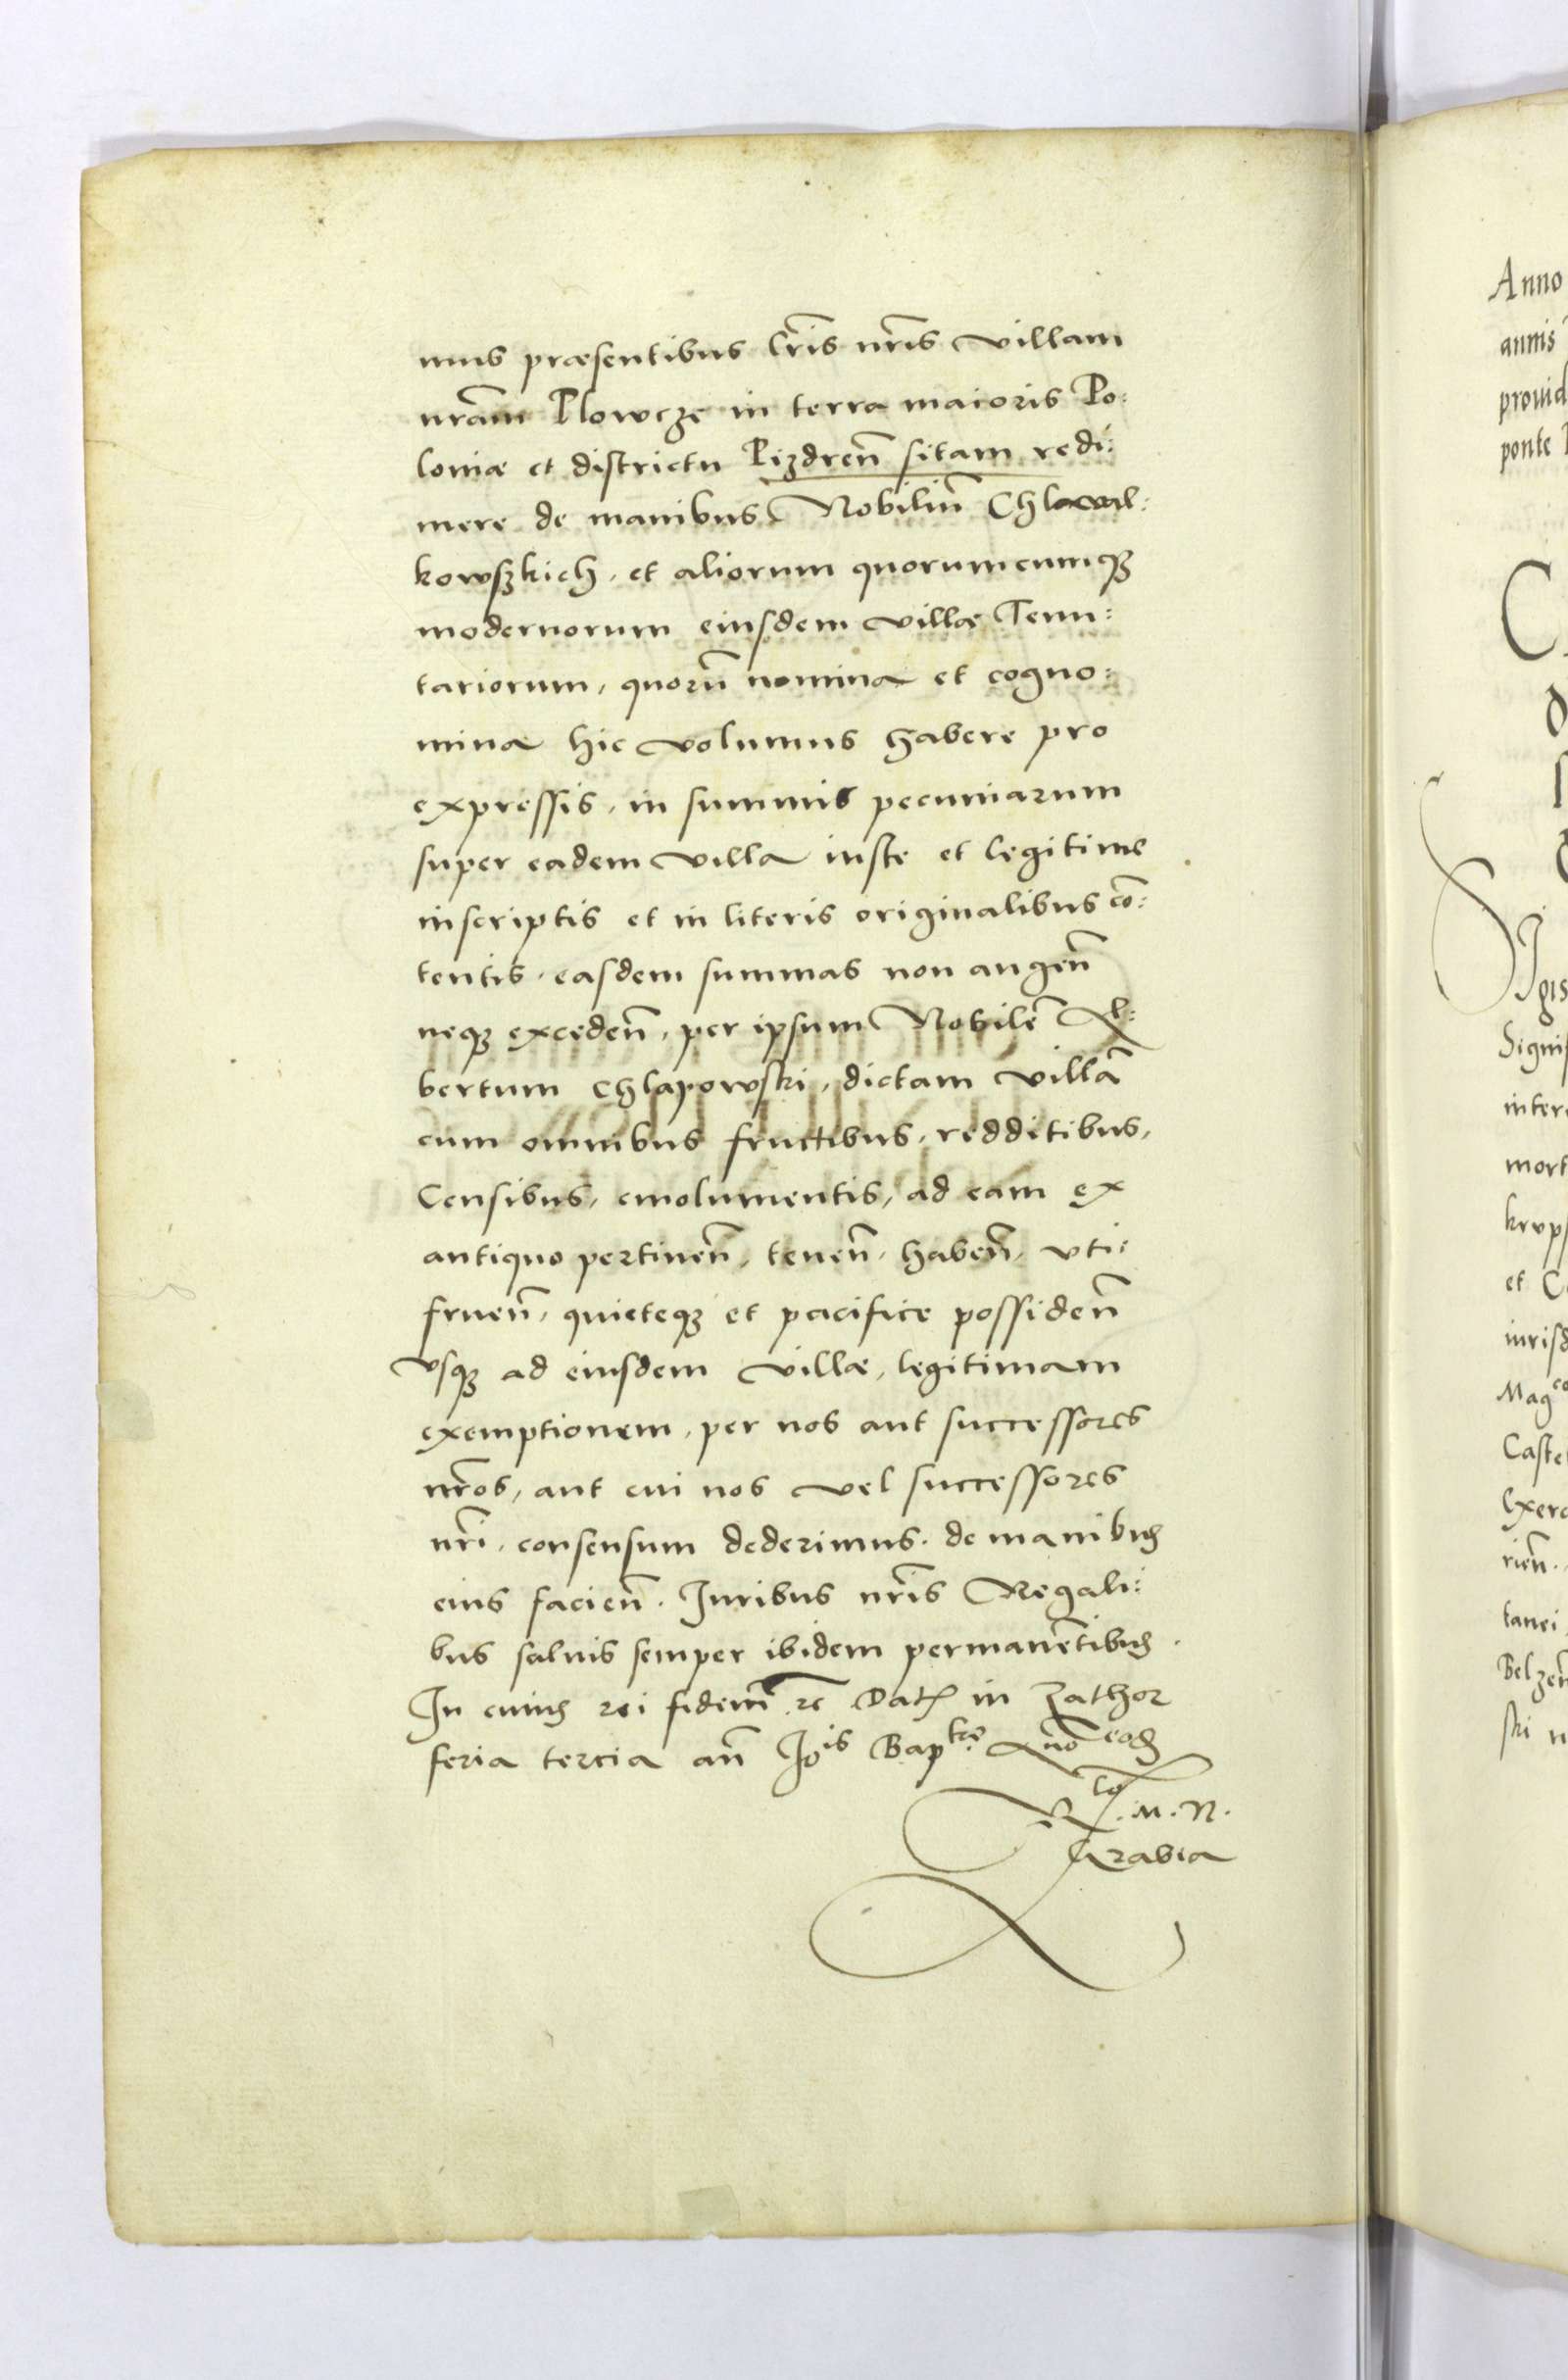 mus præsentibus l̃ris nr̃is villam
nr̃am Plowcze in terra maioris Po:
loniæ et districtu Pizdreñ sitam redi:
mere de manibus Nobiliũ
kowszkich, et aliorum quorumcumqʒ
modernorum eiusdem villæ Tenu:
tariorum, quorũ nomina et cogno:
mina hic volumus habere pro
expressis, in summis pecuniarum
super eadem villa iuste et legitime
inscriptis et in literis originalibus cõ:
tentis, easdem summas non augeñ
neqʒ excedeñ, per ipsum Nobilẽ Al:
bertum Chlapowski, dictam villã
cum omnibus fructibus, redditibus,
Censibus, emolumentis, ad eam ex
antiquo pertineñ, teneñ, habeñ, vti:
frueñ, quieteqʒ et pacifice possideñ
vsqʒ ad eiusdem villæ, legitimam
exemptionem, per nos aut successores
nr̃os, aut cui nos vel successores
nr̃i, consensum dederimus, de manibus
eius facieñ. Iuribus nr̃is Regali:
bus saluis semper ibidem permanẽtibus.
In cuius rei fidem rc̃ Dat in Zathor
feria tercia añ Jois Baptæ Anno eod
. M. N.
Grabia
Anno
annis
prouid
ponte
C
Sigis
Signif
inter
mort
krvps
et C
iurisd
Magco
Caste
Exerc
rieñ.
tanei
Belzeñ
ski n